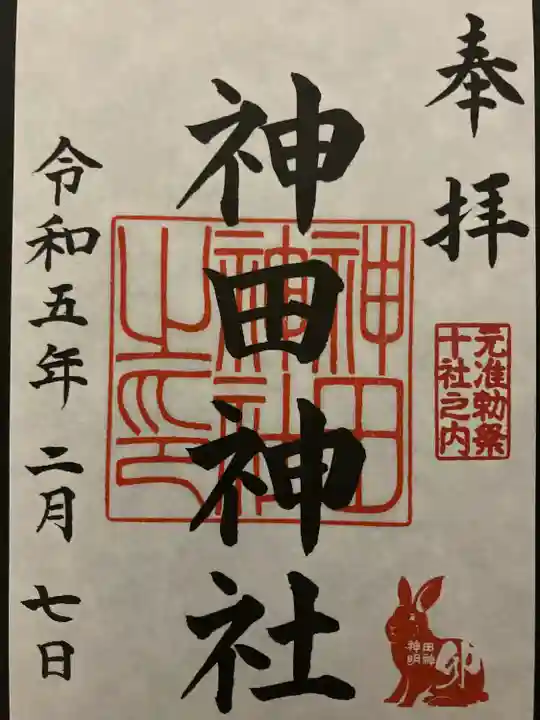 奉拝
元准勅祭
十社之内
神田神社
神田
神社
之印
令和五年二月七日
田神
神明
卯